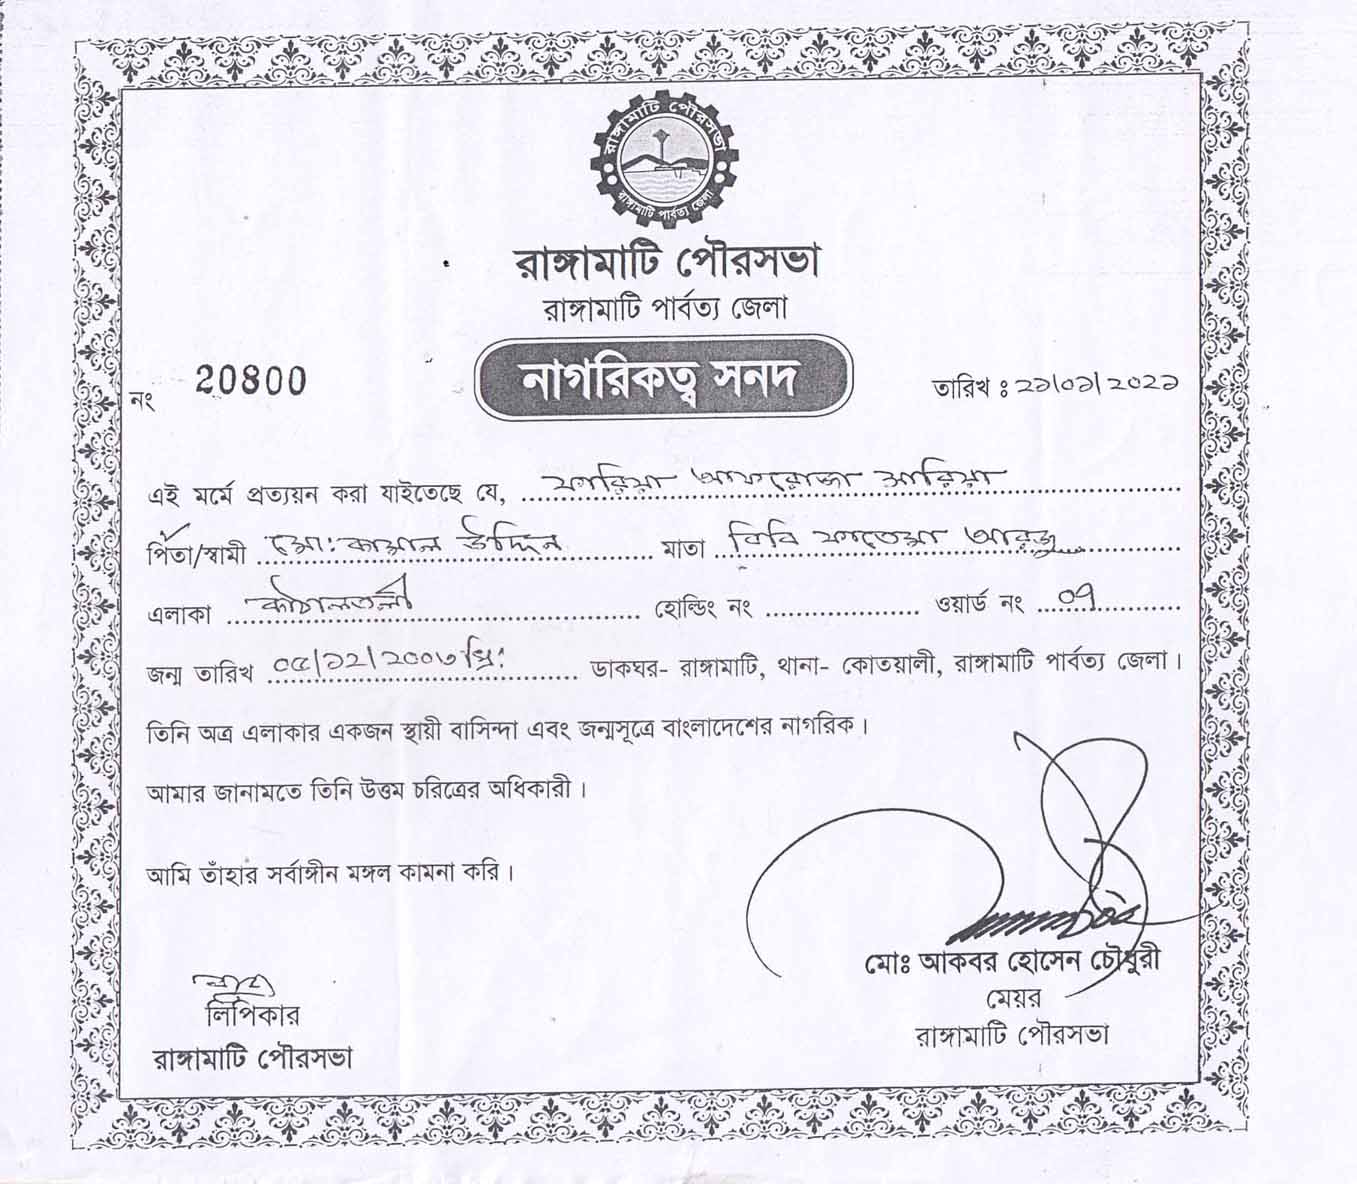 রাঙ্গামাটি পৌরসভা
রাঙ্গামাটি পার্বত্য জেলা
রাঙ্গামাটি পৌরসভা
রাঙ্গামাটি পার্বত্য জেলা
নাগরিকত্ব সনদ
নং 20800
তারিখ ঃ ২১/০১/২০২১
এই মর্মে প্রত্যয়ন করা যাইতেছে যে, ফারিয়া আফরোজা আরিয়া
পিতা/স্বামী মো: কামাল উদ্দিন মাতা বিবি ফাতেমা আরজু
এলাকা কাঁঠালতলী হোল্ডিং নং ওয়ার্ড নং ০৭
জন্ম তারিখ ০৫/১২/২০০৩ খ্রি: ডাকঘর- রাঙ্গামাটি, থানা- কোতয়ালী, রাঙ্গামাটি পার্বত্য জেলা।
তিনি অত্র এলাকার একজন স্থায়ী বাসিন্দা এবং জন্মসূত্রে বাংলাদেশের নাগরিক।
আমার জানামতে তিনি উত্তম চরিত্রের অধিকারী।
আমি তাঁহার সর্বাঙ্গীন মঙ্গল কামনা করি।
মোঃ আকবর হোসেন চৌধুরী
মেয়র
রাঙ্গামাটি পৌরসভা
লিপিকার
রাঙ্গামাটি পৌরসভা